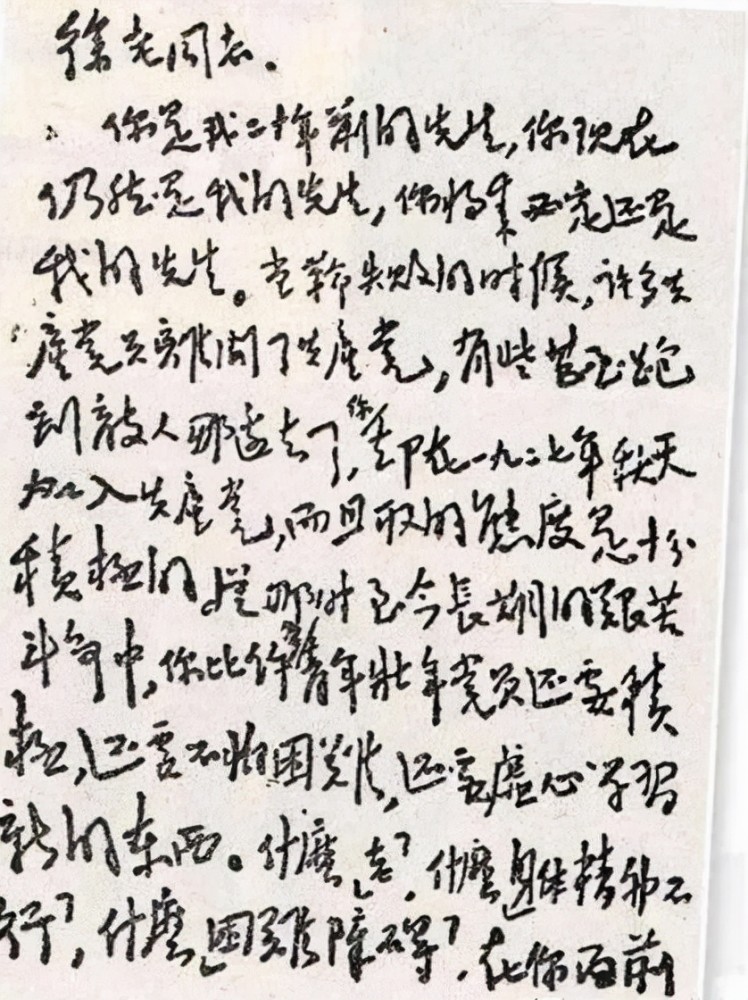 徐老同志。
你是我二十年前的先生,你现在
仍然是我的先生,你将来必定还是
我的先生。当革命失败的时候,许多共
產党员離開了共產党,有些甚至跑
到敵人那边去了,你却在一九二七年秋天
加入共產党,而且取的態度是十分
積極的。從那时至今長期的艰苦
斗争中,你比许多青年壮年党员还要積
極,还要不怕困难,还要虚心学習
新的东西。什麼「老」,什麼「身体精神不
行」,什麼「困難障碍」,在你面前